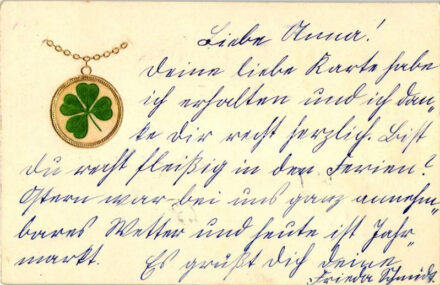 Liebe Anna!
Deine liebe Karte habe
ich erhalten und ich dan-
ke Dir recht herzlich. Bist
Du recht fleißig in den Ferien?
Ostern war bei uns ganz annehm-
bares Wetter und heute ist Jahr
markt. Es grüßt Dich Deine
Frieda Schmidt.